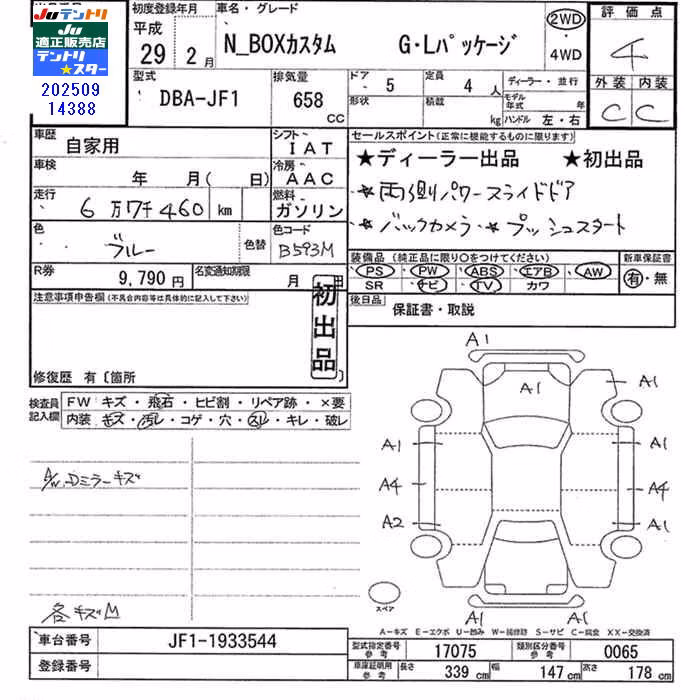 JUテントリ
JU適正販売店
テントリ★スター
202509
14388
初度登録年月 車名・グレード 評価点
平成 29年 2月 N_BOXカスタム G・Lパッケージ 2WD・4WD 4
型式 排気量 ドア 5 定員 4人 ディーラー・並行 外装 内装
DBA-JF1 658cc 形状 積載 kg モデル年式 年 ハンドル 左・右 C C
車歴 自家用 シフト IAT セールスポイント(正常に機能するものに限ります)
車検 年 月( 日) 冷房 AAC ★ディーラー出品 ★初出品
走行 6万7千460km 燃料 ガソリン ★両側パワースライドドア
★バックカメラ ★プッシュスタート
色 ブルー 色替 色コード B593M
装備品(純正品に限り○をつけてください) 新車保証書
PS・PW・ABS・エアB・AW 有・無
SR ナビ・TV カワ
R券 9,790円 名変通知期限 月 日
後日品 保証書・取説
注意事項申告欄(不具合内容等は具体的に記入して下さい)
初出品
修復歴 有〔箇所
検査員記入欄 FW キズ・飛石・ヒビ割・リペア跡・×要
内装 キズ・汚レ・コゲ・穴・スレ・キレ・破レ
A/W.Dミラーキズ
各キズ凹
A1
A1 A1
A1 A1
A4 A4
A2 A1
A1 A1
スペア
A-キズ E-エクボ U-凹み W-補修跡 S-サビ C-腐食 XX-交換済
車台番号 JF1-1933544 型式指定番号 参考 17075 類別区分番号 参考 0065
登録番号 車庫証明用 参考 長さ 339cm 幅 147cm 高さ 178cm